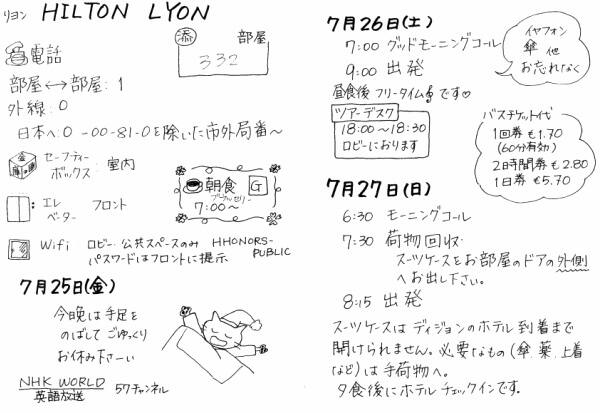 リヨン HILTON LYON
添 部屋
332
電話
部屋↔部屋:1
外線:0
日本へ:0-00-81-0を除いた市外局番〜
セーフティーボックス:室内
朝食 G
7:00〜
エレベーター フロント
Wifi ロビー公共スペースのみ HHONORS-PUBLIC
パスワードはフロントに提示
7月25日(金)
今晩は手足を
のばして ごゆっくり
お休み下さーい
NHK WORLD 57チャンネル
英語放送
7月26日(土)
7:00 グッドモーニングコール
9:00 出発
昼食後 フリータイムです♡
ツアーデスク
18:00〜18:30
ロビーにおります
イヤフォン
傘 他
お忘れなく
バスチケット代
1回券 €1.70
(60分有効)
2時間券 €2.80
1日券 €5.70
7月27日(日)
6:30 モーニングコール
7:30 荷物回収
スーツケースをお部屋のドアの外側
へお出し下さい。
8:15 出発
スーツケースはディジョンのホテル到着まで
開けられません。必要なもの(傘、薬、上着
など)は手荷物へ。
夕食後にホテルチェックインです。